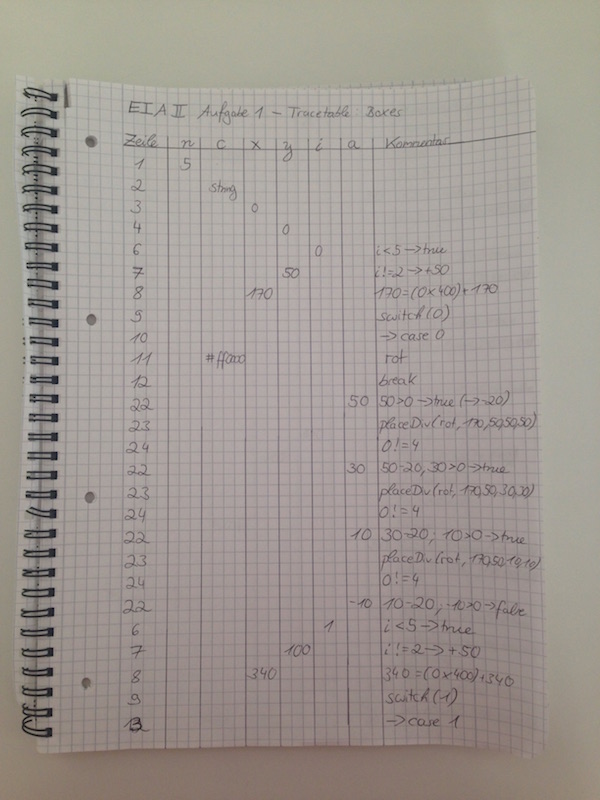 EIA II Aufgabe 1 - Tracetable Boxes
Zeile n c x y i a Kommentar
1 5
2 string
3 0
4 0
6 0 i<5->true
7 50 i!=2->+50
8 170 170=(0x400)+170
9 switch(0)
10 ->case 0
11 #ff0000 rot
12 break
22 50 50>0->true(->-20)
23 placeDiv(rot,170,50,50,50)
24 0!=4
22 30 50-20,30>0->true
23 placeDiv(rot,170,50,30,30)
24 0!=4
22 10 30-20; 10>0->true
23 placeDiv(rot,170,50,10,10)
24 0!=4
22 -10 10-20; -10>0->false
6 1 i<5->true
7 100 i!=2->+50
8 340 340=(0x400)+340
9 switch(1)
13 ->case 1